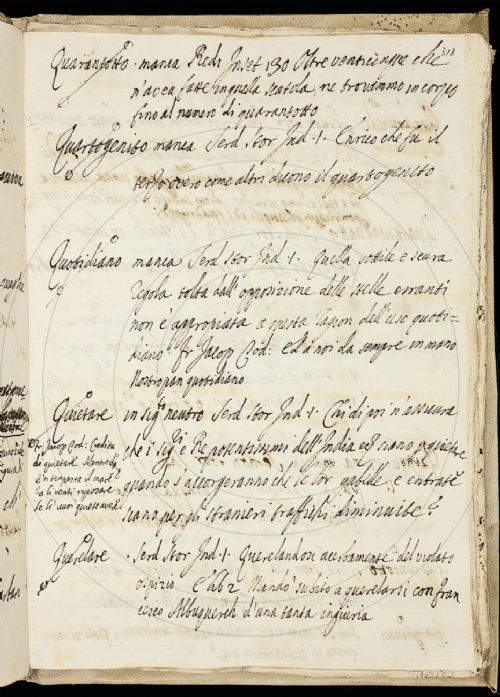 318
Quarantotto · manca Redi Inset 130 Oltre venticinque che
n'avea fatte in quella scatola ne trovammo in corpo
fino al numero di quarantotto
Quartogenito manca Serd Stor Ind · 1 · Enrico che fu il
terzo overo come altri dicono il quartogenito
Quotidiano manca Serd Stor Ind · 1 · Quella sottile e scura
regola tolta dall' opposizione delle stelle erranti
non è appropiata a questa ragion dell' uso quoti=
diano Fr Jacop Tod: Ed a noi da sempre in mano
Nostro pan quotidiano
Quietare in sig.to neutro Serd Stor Ind · 1 · Chi di voi n'assicura
che i Sig.ri Re potentissimi dell' India siano p quietare
quando s'accorgeranno che le lor gabelle e entrate
siano per gli stranieri traffichi diminuite?
Fr Jacop Tod:
di quietare
se li vuoi quetamente
Querelare · Serd Stor Ind · 1 · Querelandosi acerbamente del violato
ospizio E lib 2 Mandò subito a querelarsi con Fran
cesco Albuquerch d'una tanta ingiuria